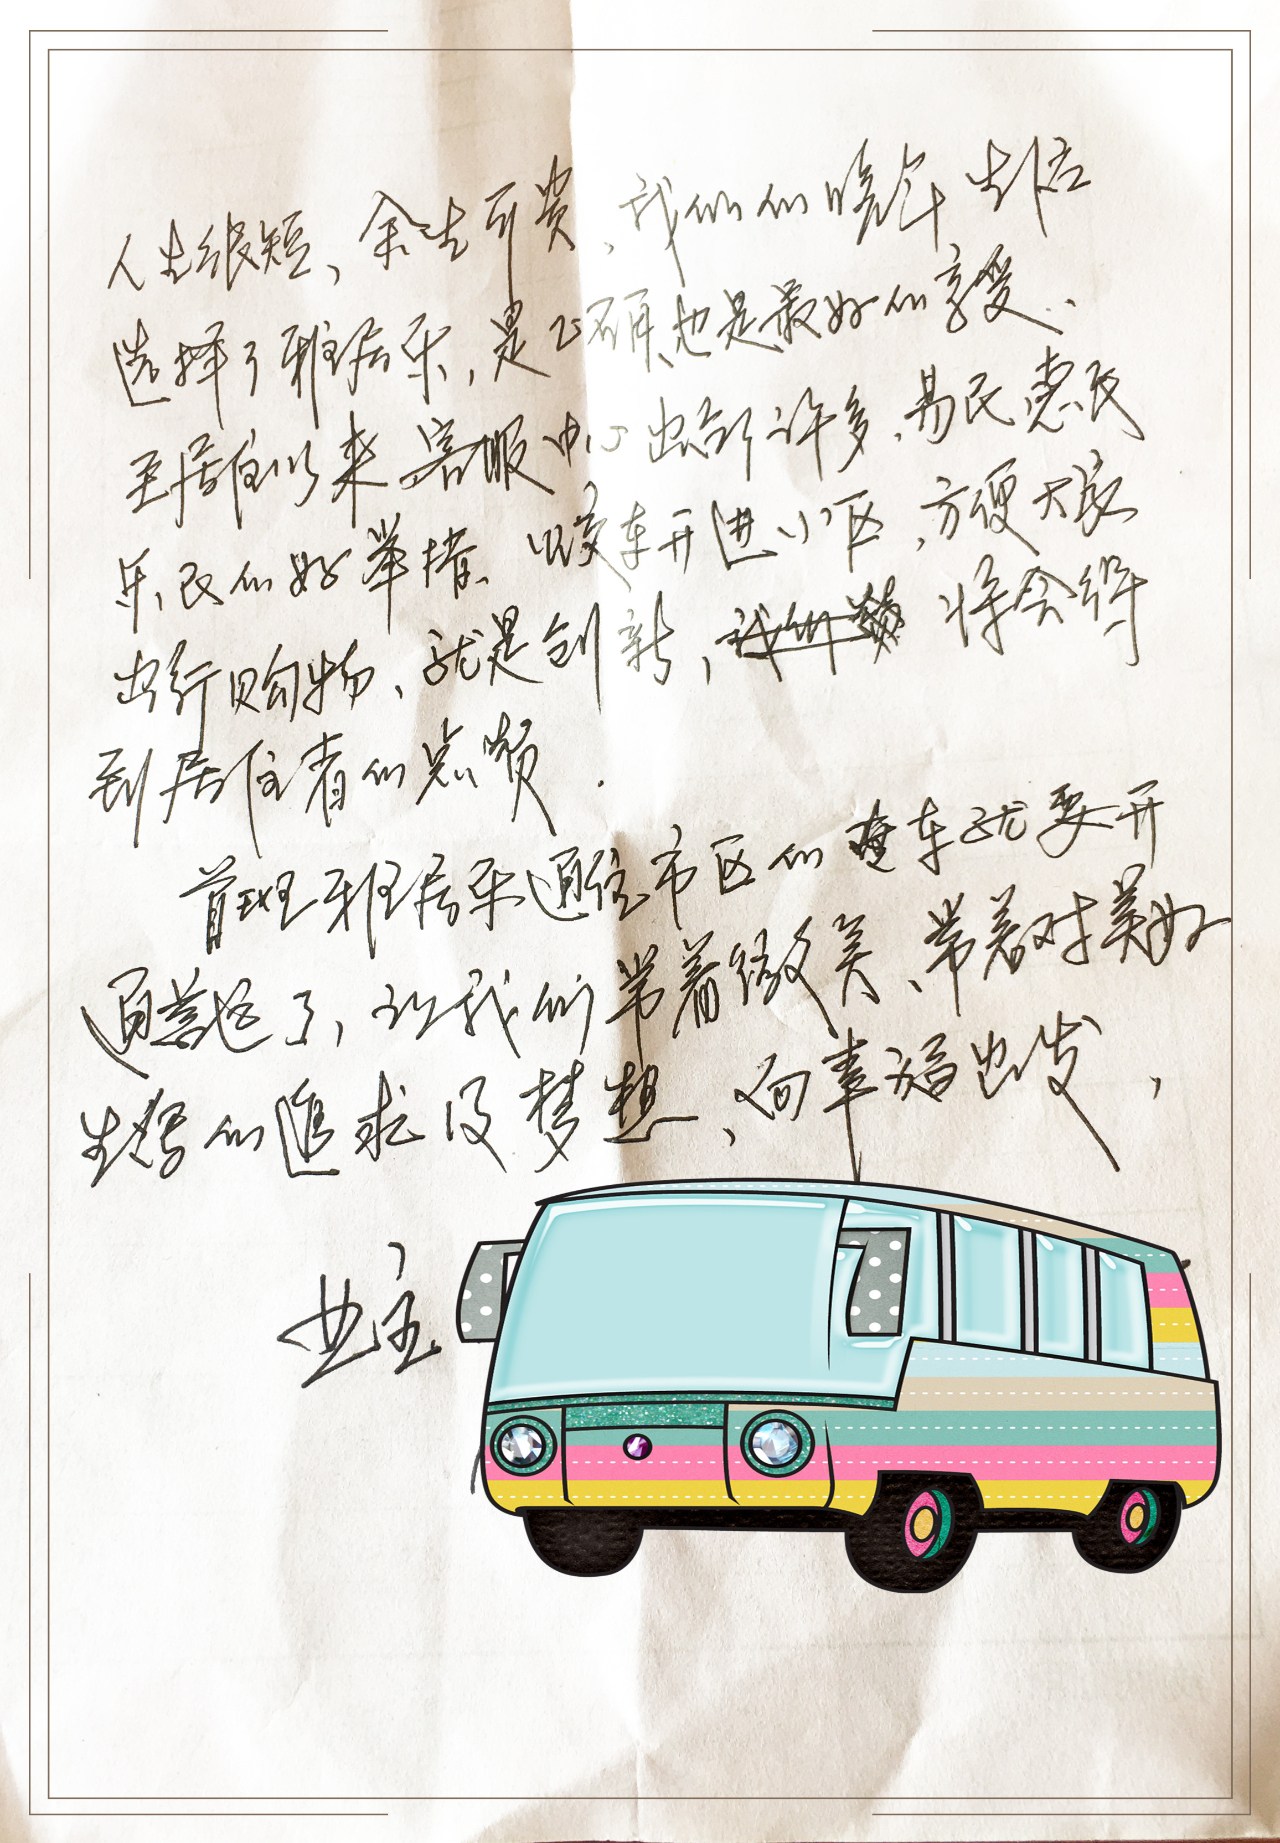 人生很短、余生可贵，我们的晚年生活
选择了雅居乐，是正确，也是最好的享受.
至居住以来，客服中心出台了许多，易民惠民
乐民的好举措、以交车开进小区，方便大家
出行购物、就是创新，将会得
到居住者的点赞.
首班雅居乐通往市区的车就要开
通营运了，让我们带着微笑、带着对美好
生活的追求及梦想、向幸福出发，
业主